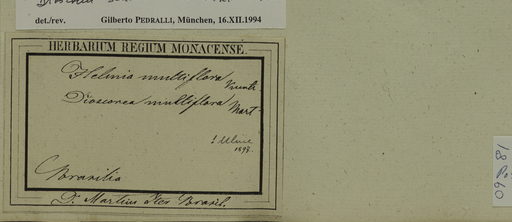 det./rev. Gilberto PEDRALLI, München, 16.XII.1994
HERBARIUM REGIUM MONACENSE.
Helinia multiflora
Dioscorea multiflora Mart
Brasilia
Dr. Martius Iter Brasil.